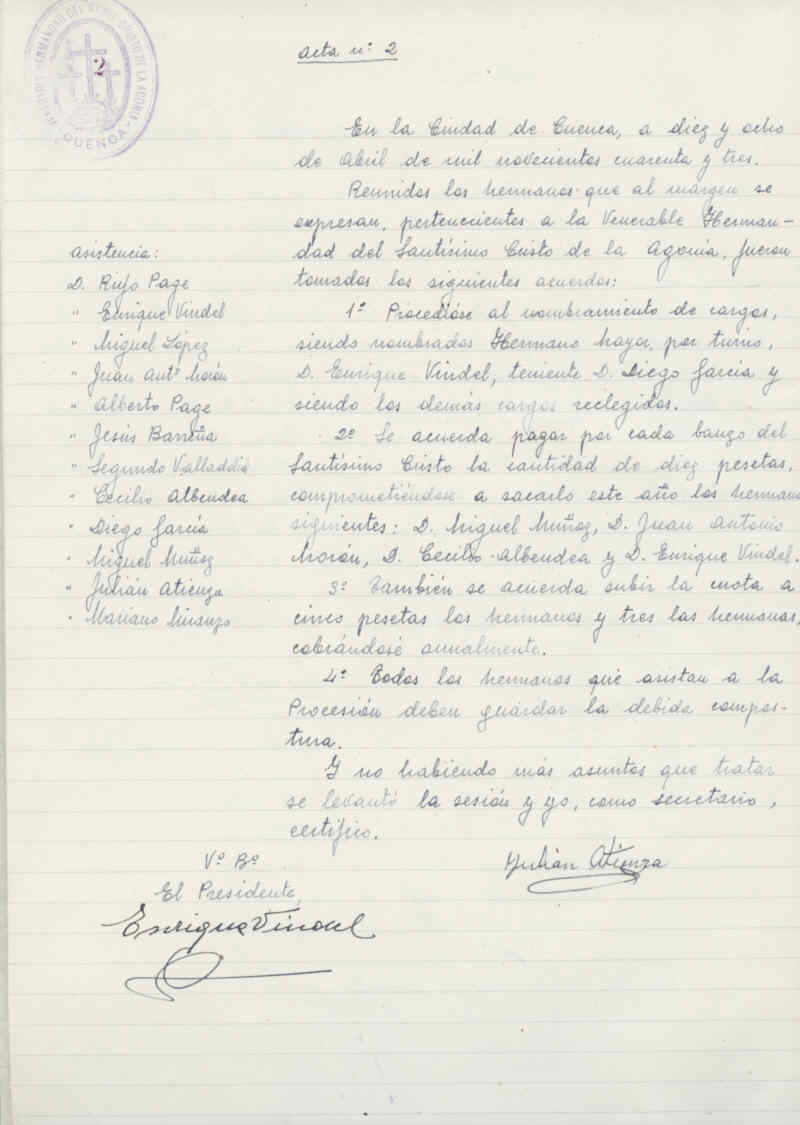 VENERABLE HERMANDAD DEL STMO. CRISTO DE LA AGONIA
CUENCA
2
Acta nº 2
En la Ciudad de Cuenca, a diez y ocho
de Abril de mil novecientos cuarenta y tres.
Reunidos los hermanos que al margen se
expresan, pertenecientes a la Venerable Herman-
dad del Santísimo Cristo de la Agonía, fueron
tomados los siguientes acuerdos:
1º Procedióse al nombramiento de cargos,
siendo nombrados Hermano Mayor, por turno,
D. Enrique Vindel, teniente D. Diego García y
siendo los demás cargos reelegidos.
2º Se acuerda pagar por cada banzo del
Santísimo Cristo la cantidad de diez pesetas,
comprometiéndose a sacarlo este año los hermanos
siguientes: D. Miguel Muñoz, D. Juan Antonio
Morón, D. Cecilio Albendea y D. Enrique Vindel.
3º También se acuerda subir la cuota a
cinco pesetas los hermanos y tres las hermanas,
cobrándose anualmente.
4º Todos los hermanos que asistan a la
Procesión deben guardar la debida compos-
tura.
Y no habiendo más asuntos que tratar
se levantó la sesión y yo, como secretario,
certifico.
Asistencia:
D. Rufo Page
" Enrique Vindel
" Miguel López
" Juan Antº Morón
" Alberto Page
" Jesús Barreña
" Segundo Valladolid
" Cecilio Albendea
" Diego García
" Miguel Muñoz
" Julián Atienza
" Mariano
Vº Bº
El Presidente,
Enrique Vindel
Julián Atienza